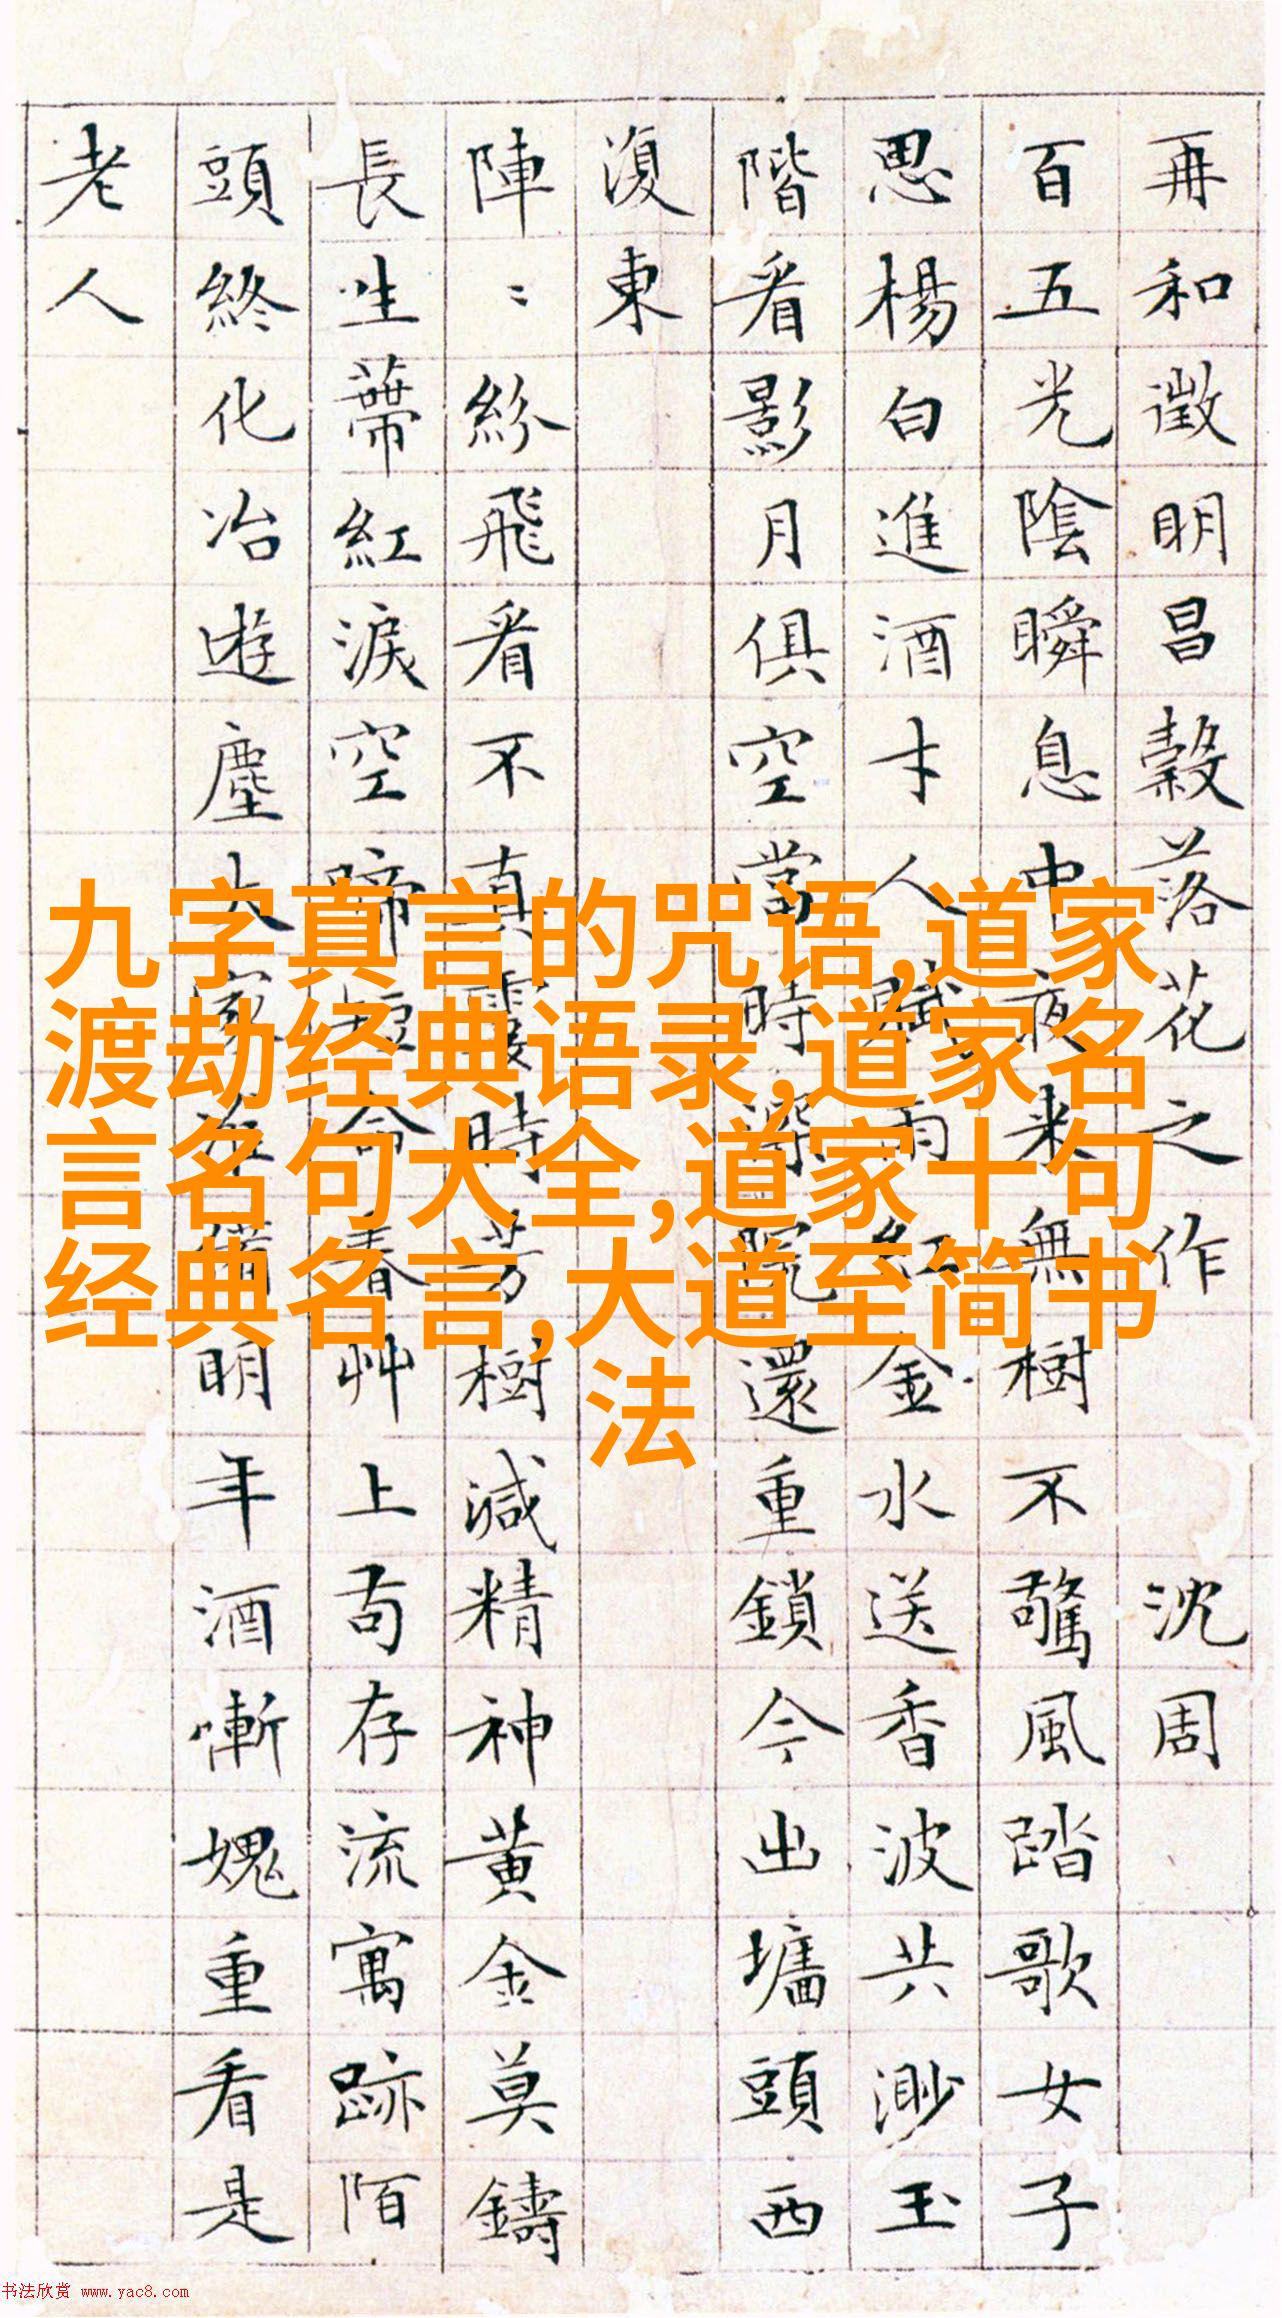 再和徵明昌穀落花之作 沈周
百五光陰瞬息中夜来無樹不驚風踏歌女子
思楊白進酒才人賦雨紅金水送香波共渺玉
階看影月俱空當時深院還重鎖今出墻頭西
復東
陣〻紛飛看不真霎時芳樹減精神黃金莫鑄
長生蔕紅淚空啼短命春艸上苟存流寓跡陌
頭終化冶遊塵大家准備明年酒慚媿重看是
老人
九字真言的咒语,道家
渡劫经典语录,道家名
言名句大全,道家十句
经典名言,大道至简书
法
书法欣赏 www.yac8.com